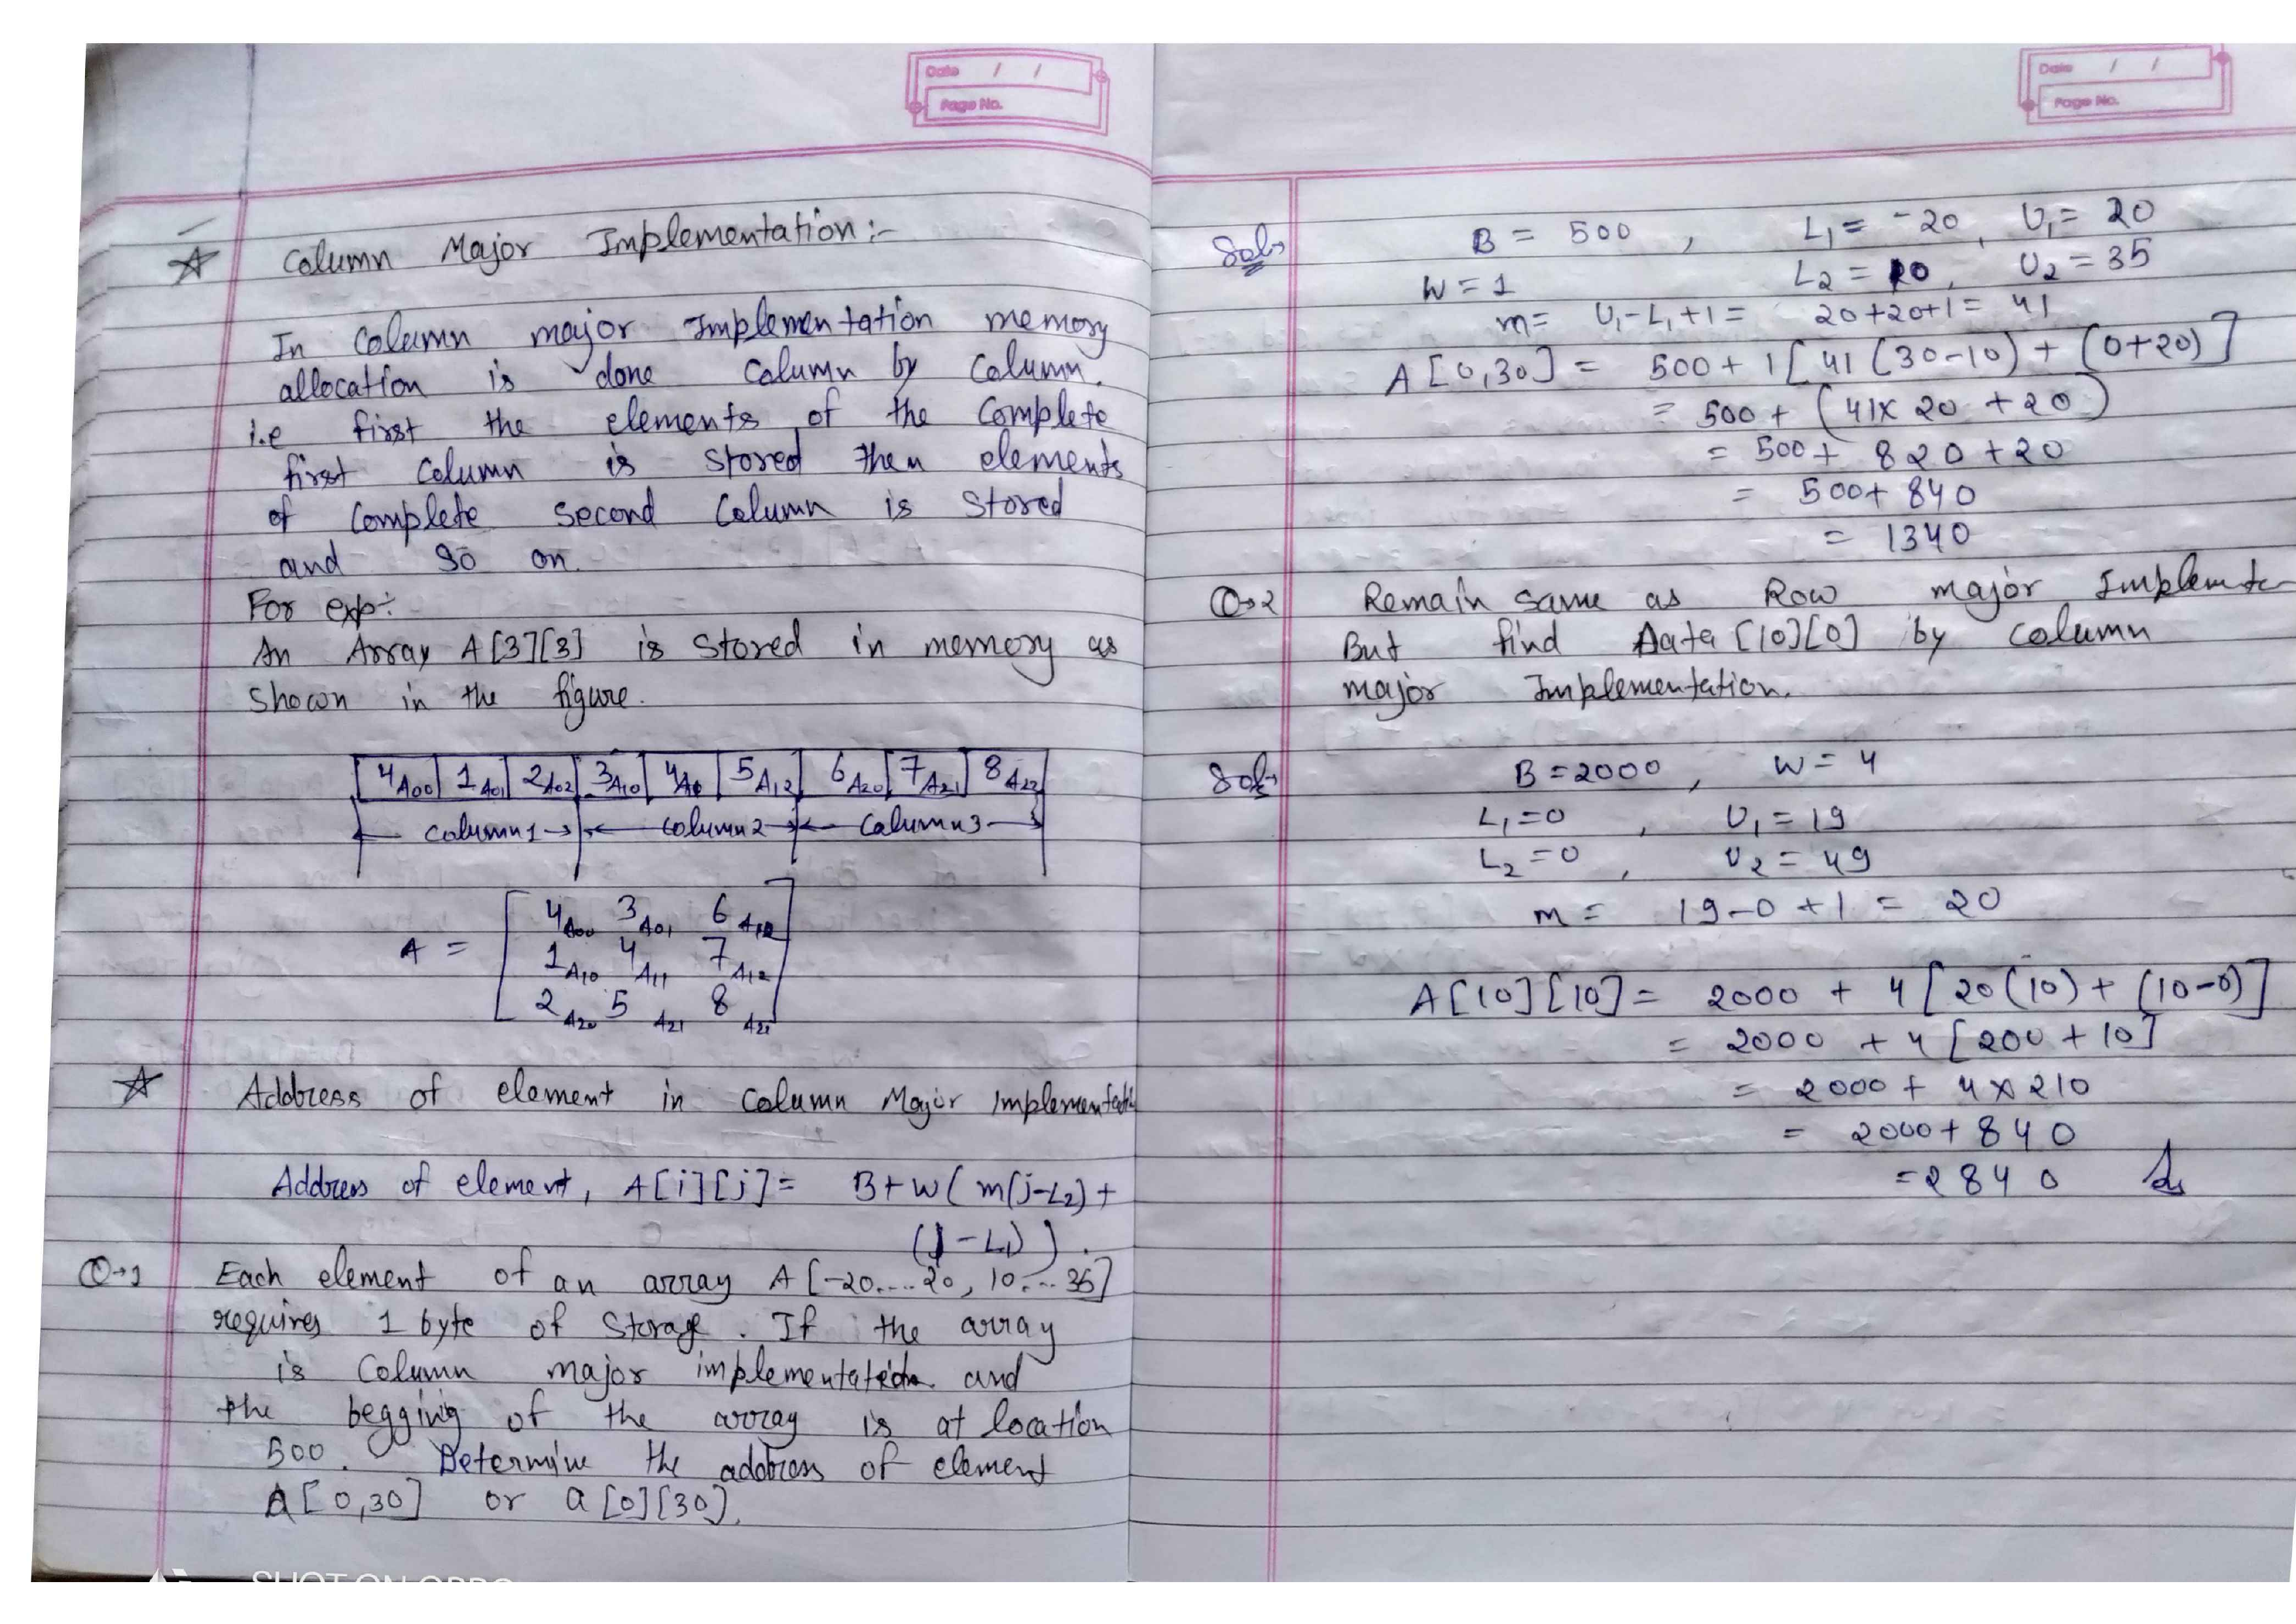 Date / /
Page No.
☆ Column Major Implementation:-
In Column major Implementation memory
allocation is done Column by Column.
i.e first the elements of the complete
first column is stored then elements
of complete second column is stored
and so on.
For exp:
An Array A[3][3] is stored in memory as
shown in the figure.
4A00 1A01 2A02 3A10 4A 5A12 6A20 7A21 8A22
Column1 Column2 Column3
4A00 3A01 6
A = 1A10 4A11 7A12
2A20 5A21 8A22
☆ Address of element in Column Major Implementati
Address of element, A[i][j] = B+W( m(j-L2) +
( -L1) ).
Q→1 Each element of an array A[-20....20, 10....35]
requires 1 byte of storage. If the array
is Column major implementation and
the begging of the array is at location
500. Determine the address of element
A[0,30] or a[0][30].
Date / /
Page No.
Sol→ B = 500, L1 = -20, U1 = 20
W = 1 L2 = 10, U2 = 35
m = U1-L1+1 = 20+20+1 = 41
A[0,30] = 500 + 1[41(30-10) + (0+20)]
= 500 + (41x 20 +20)
= 500 + 820 +20
= 500+ 840
= 1340
Q→2 Remain same as Row major Implemte
But find Data [10][0] by column
major Implementation.
Sol→ B = 2000, W = 4
L1 = 0, U1 = 19
L2 = 0, U2 = 49
m = 19-0 +1 = 20
A[10][10] = 2000 + 4[20(10) + (10-0)]
= 2000 + 4[200 + 10]
= 2000 + 4 x 210
= 2000 + 840
= 2840
SHOT ON OPPO